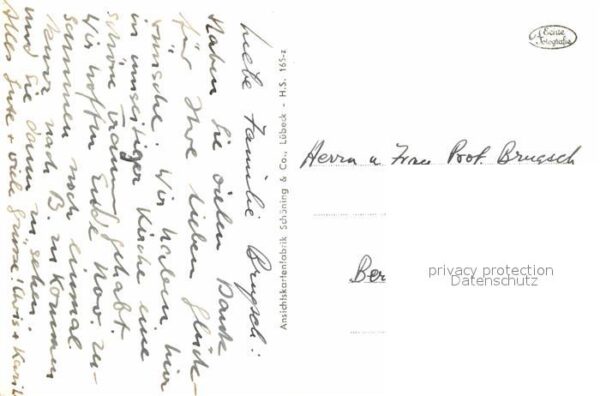 Liebe Familie Brugsch!
Haben Sie vielen Dank
für Ihre lieben Glück-
wünsche. Wir haben hier
in unseitiger Kirche eine
schöne Trauung gehabt.
Wir hoffen Ende Nov. zu-
sammen noch einmal
kurz nach B. zu kommen
und Sie dann zu sehen.
Alles Gute + viele Grüsse! Chris + Karib
Ansichtskartenfabrik Schöning & Co., Lübeck - H.S. 165-z
Echte
Fotografie
Herrn u Frau Prof. Brugsch
Ber
privacy protection
Datenschutz